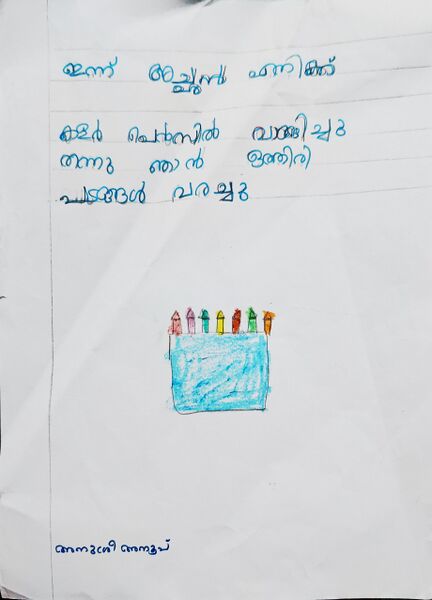 ഇന്ന് അച്ഛൻ എനിക്ക്
കളർ പെൻസിൽ വാങ്ങിച്ചു
തന്നു ഞാൻ ഒത്തിരി
പടങ്ങൾ വരച്ചു
അനുശ്രീ അനൂപ്